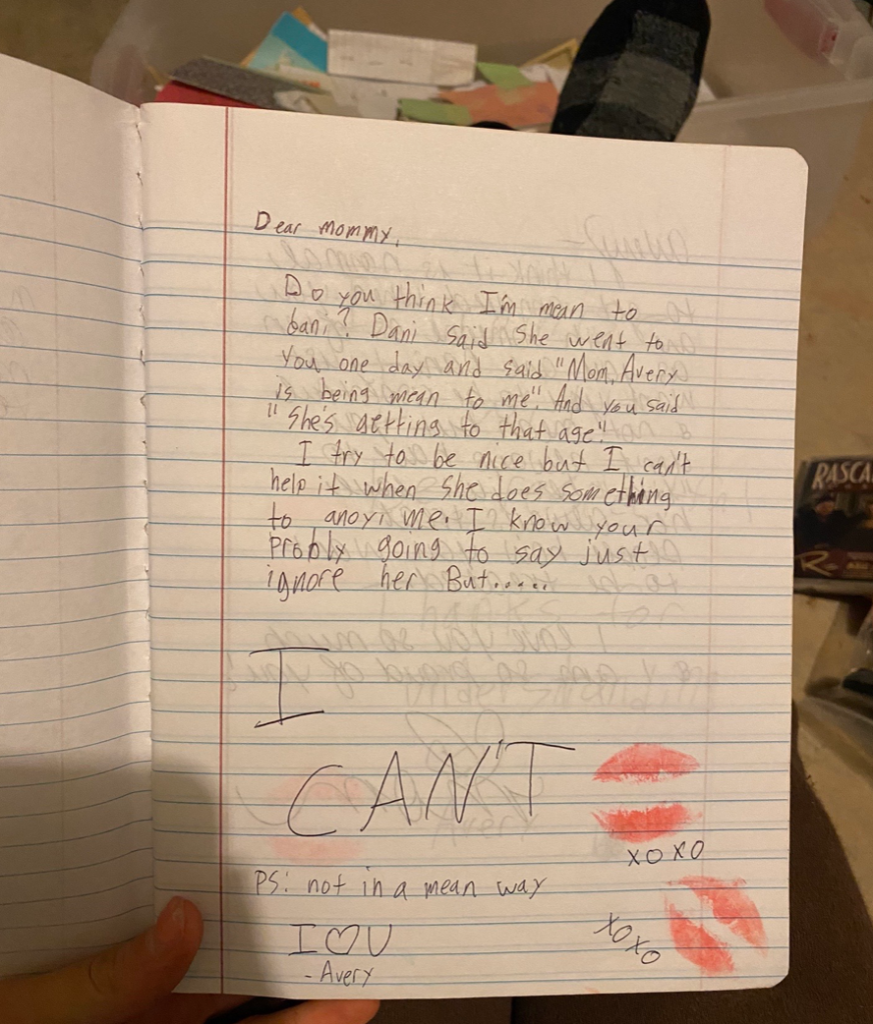 Dear Mommy,
Do you think I'm mean to
Dani? Dani said she went to
you one day and said "Mom, Avery
is being mean to me". And you said
"She's getting to that age".
I try to be nice but I can't
help it when she does something
to anoyi me. I know your
probly going to say just
ignore her But.....
I
CAN'T
XOXO
PS: not in a mean way
XOXO
I ♡ U
- Avery
RASCA